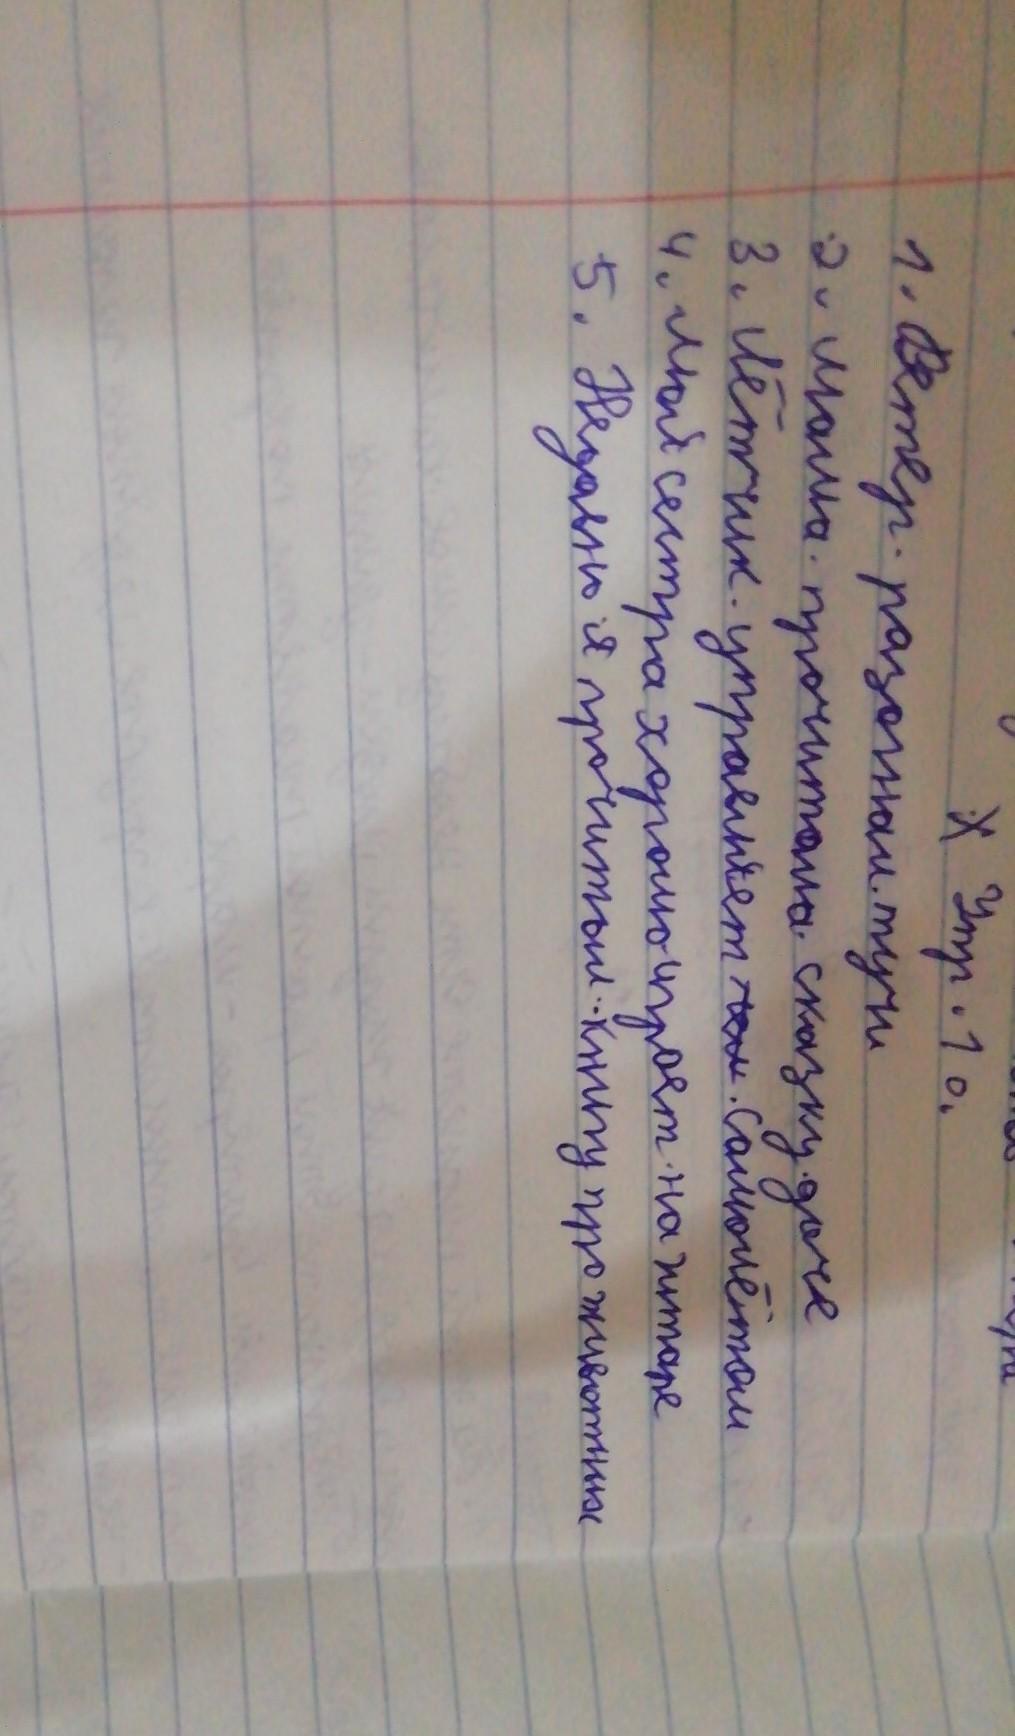 Упр. 10.
1. Ветер разогнал тучи
2. Мама прочитала сказку дочке
3. Лётчик управляет самолётом
4. Моя сестра хорошо играет на гитаре
5. Недавно я прочитал книгу про животных